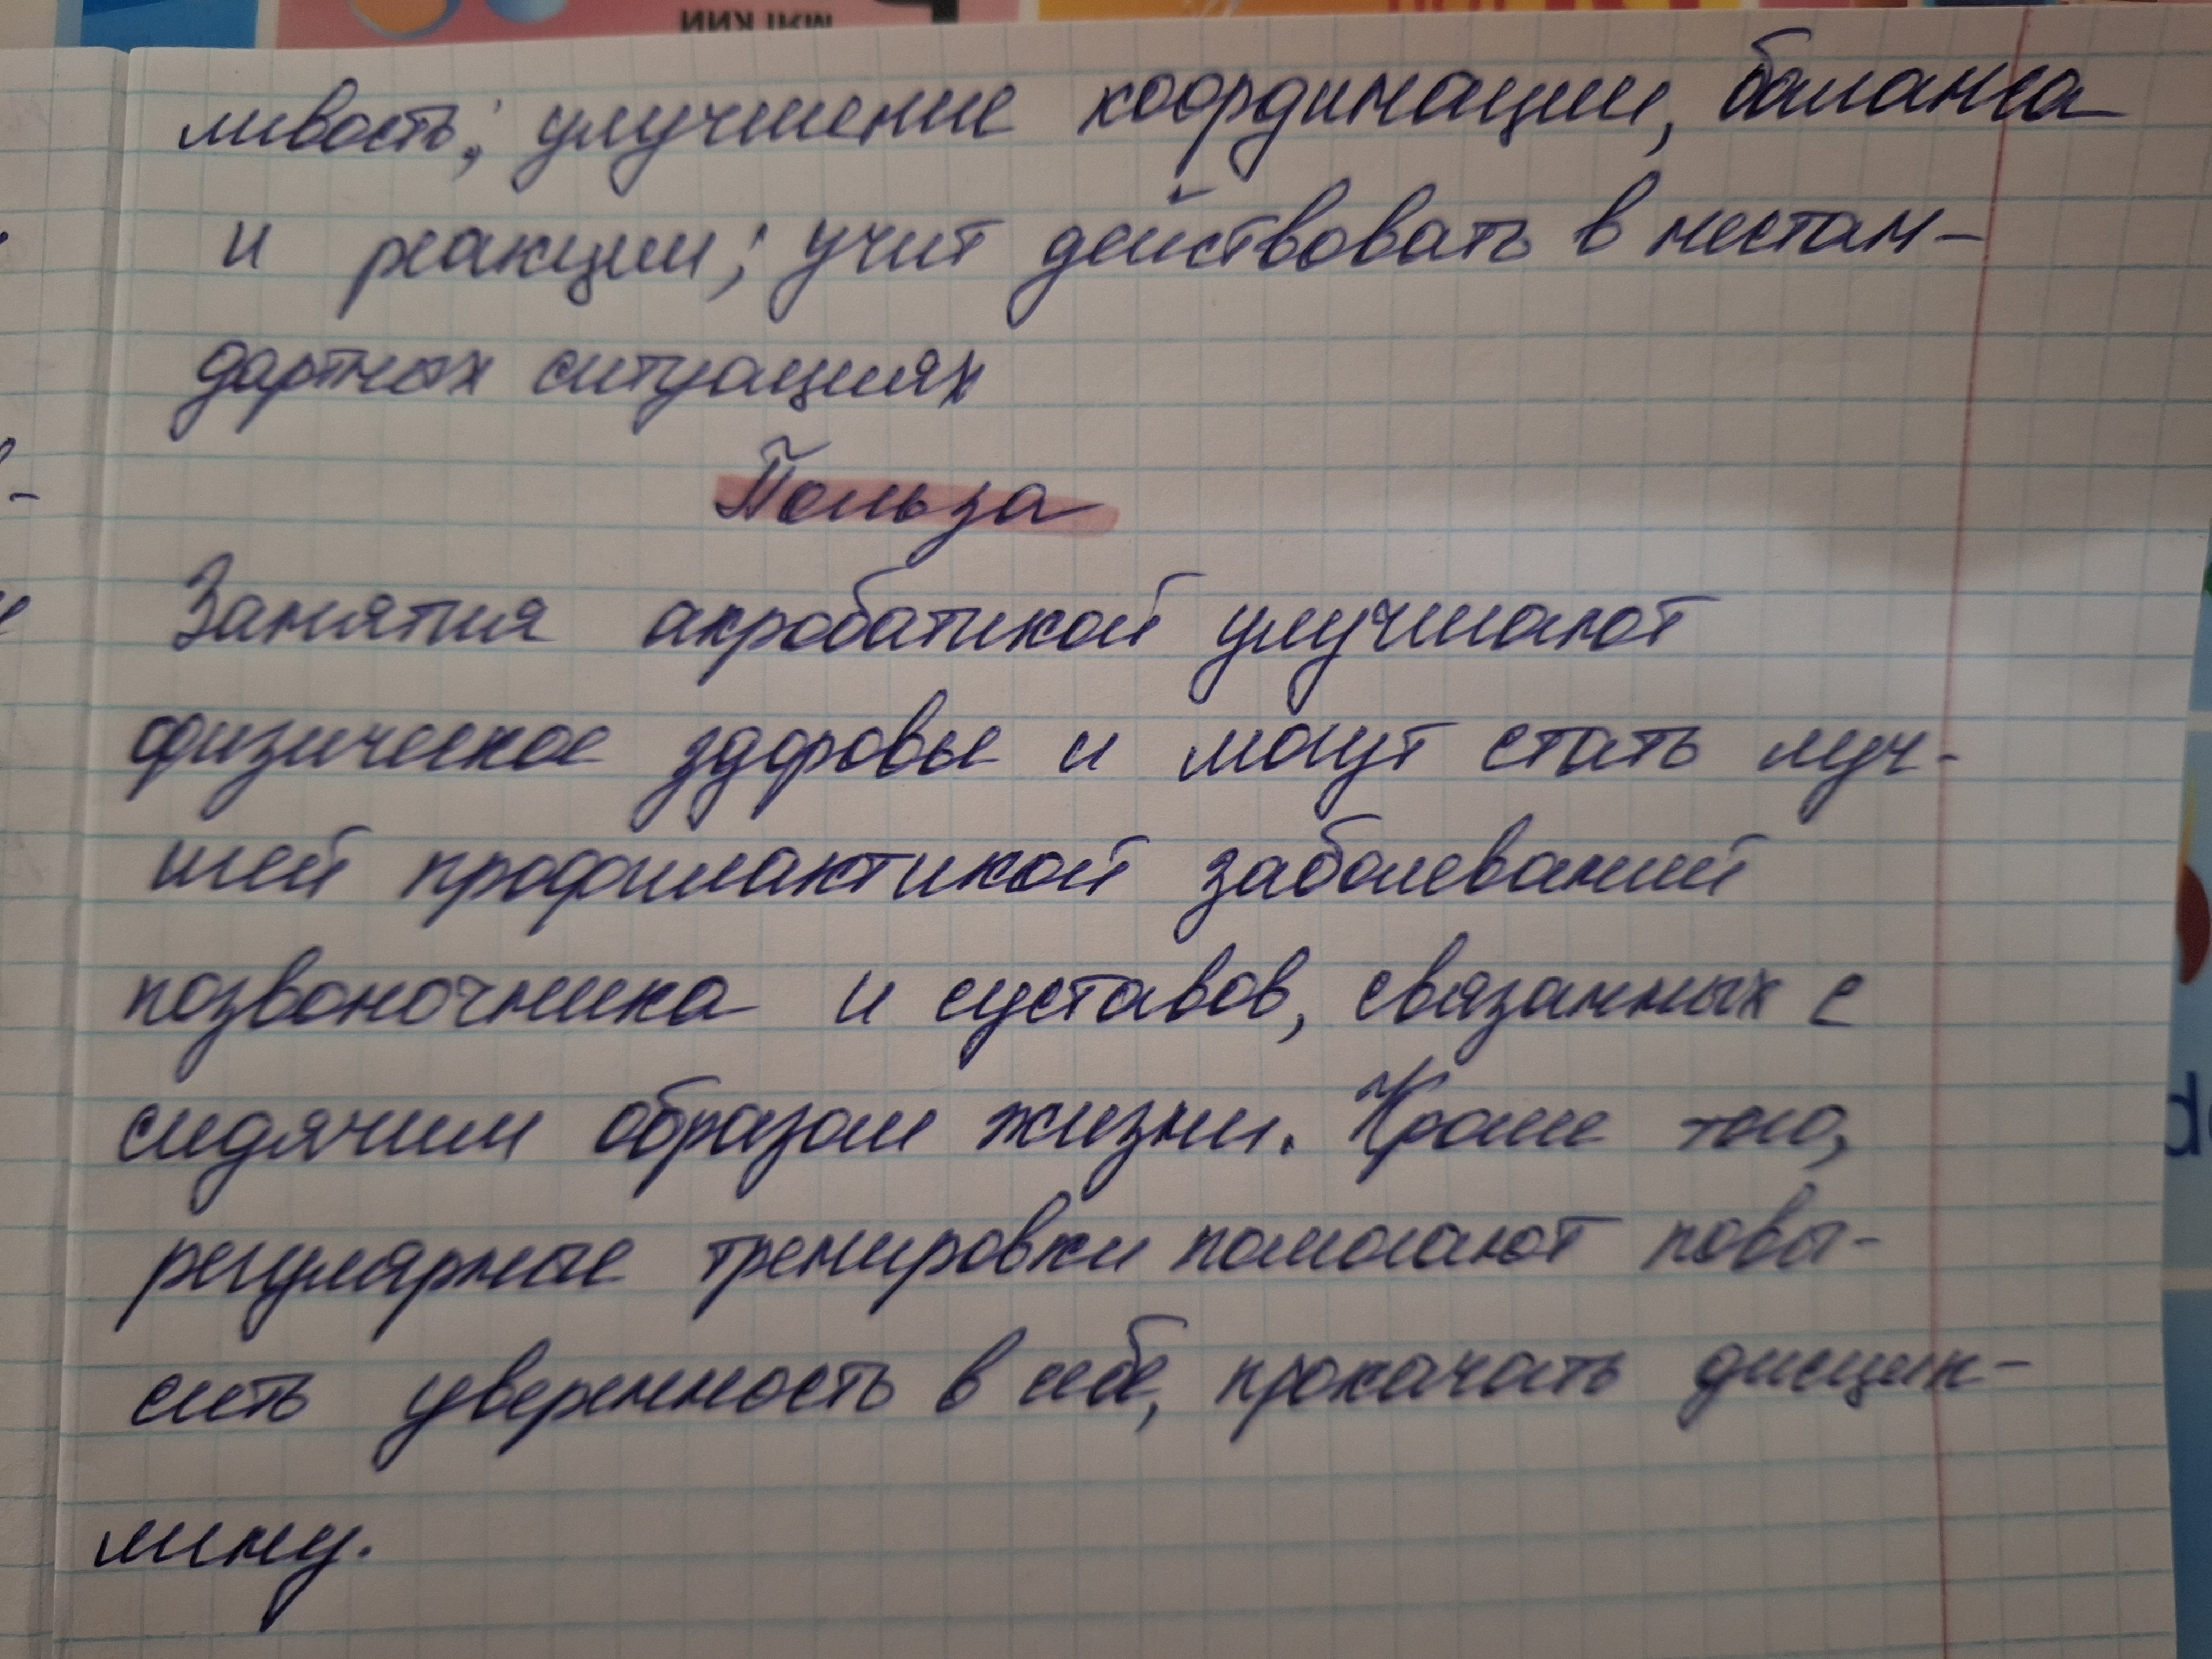 ливость; улучшение координации, баланса
и реакции; учит действовать в нестан-
дартных ситуациях
Польза
Занятия акробатикой улучшают
физическое здоровье и могут стать луч-
шей профилактикой заболеваний
позвоночника и суставов, связанных с
сидячим образом жизни. Кроме того,
регулярные тренировки помогают повы-
сить уверенность в себе, прокачать дисцип-
лину.